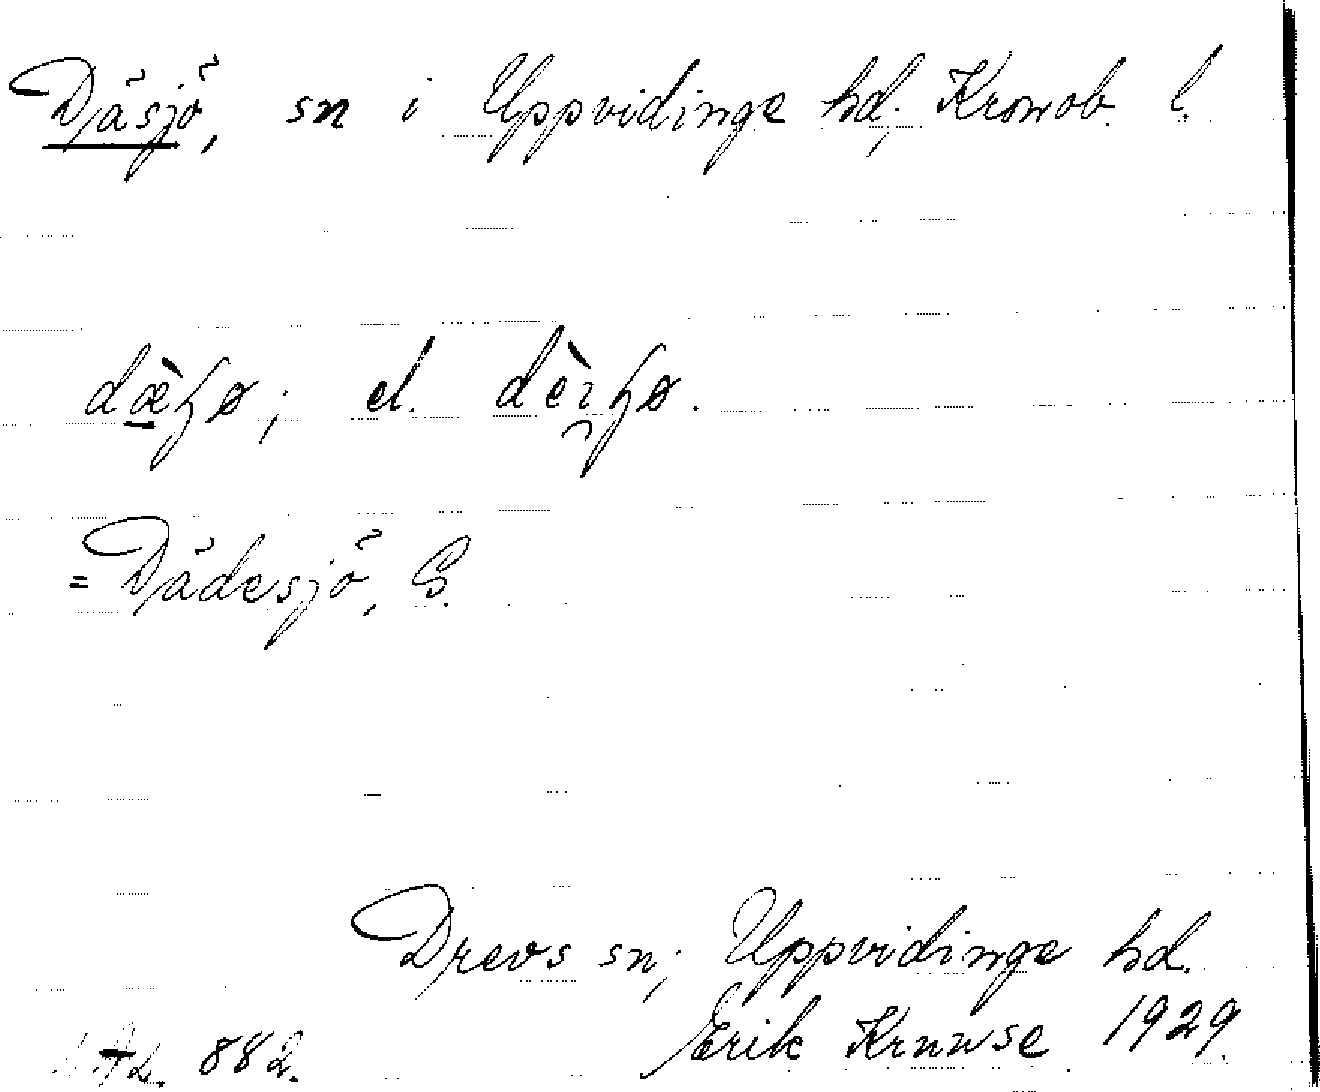 Däsjö, sn i Uppvidinge hd, Kronob. l.
dæ̀ɧø; el. dèɧø.
= Dädesjö, S.
Drevs sn; Uppvidinge hd.
Erik Kruuse 1929.
882.